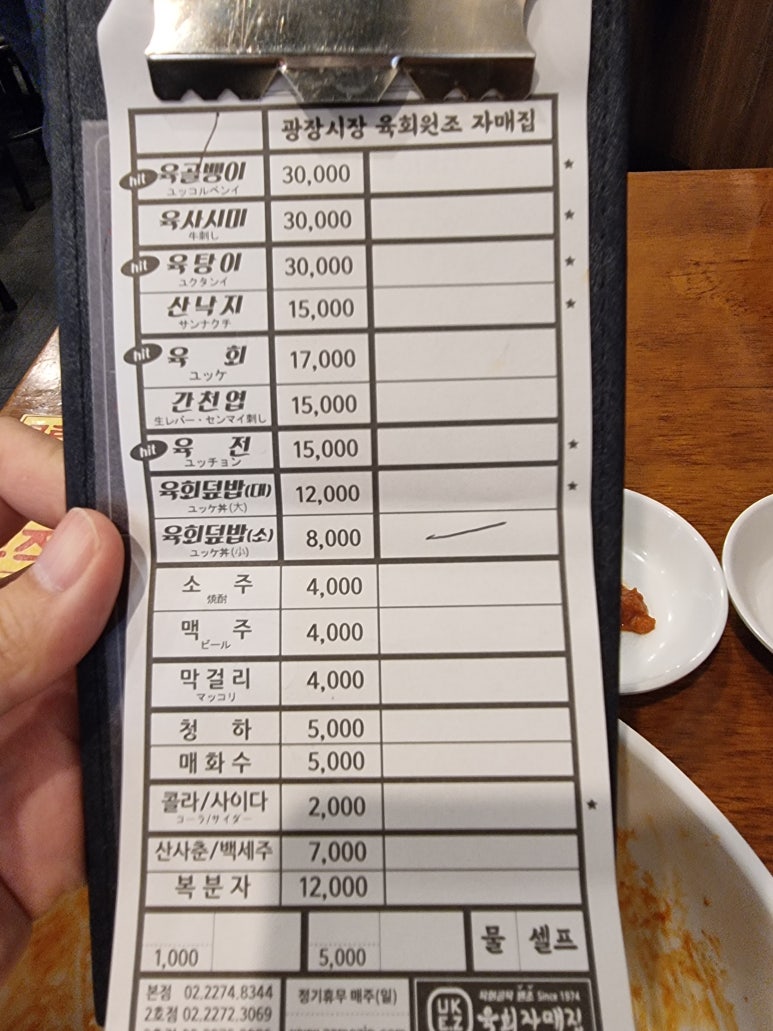 광장시장 육회원조 자매집
hit 육골뱅이 30,000 ★
ユッコルベンイ
육사시미 30,000 ★
牛刺し
hit 육탕이 30,000 ★
ユクタンイ
산낙지 15,000 ★
サンナクチ
hit 육 회 17,000
ユッケ
간천엽 15,000
生レバー・センマイ刺し
hit 육 전 15,000 ★
ユッチョン
육회덮밥(대) 12,000 ★
ユッケ丼(大)
육회덮밥(소) 8,000
ユッケ丼(小)
소 주 4,000
焼酎
맥 주 4,000
ビール
막걸리 4,000
マッコリ
청 하 5,000
매화수 5,000
콜라/사이다 2,000 ★
コーラ/サイダー
산사춘/백세주 7,000
복분자 12,000
1,000 5,000 물 셀프
본점 02.2274.8344
2호점 02.2272.3069
정기휴무 매주(일)
Since 1974
육회자매집